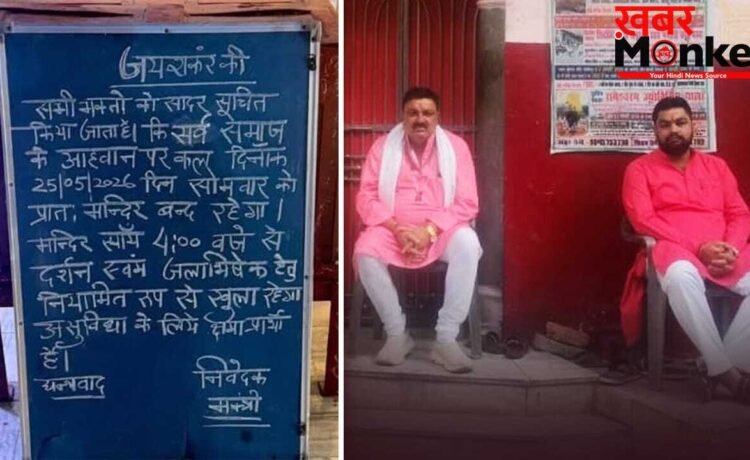 जय शंकर की
सभी भक्तो को सादर सूचित
किया जाता है। कि सर्व समाज
के आहवान पर कल दिनांक
25/05/2026 दिन सोमवार को
प्रातः मन्दिर बन्द रहेगा।
मन्दिर सॉय 4:00 वजे से
दर्शन स्वंम जलाभिषेक हेतु
नियामित रूप से खुला रहेगा
असुविधा के लिये क्षमाप्रार्थी
है।
धन्यवाद
निवेदक
मंत्री
ख़बर
Monke
Your Hindi News Source